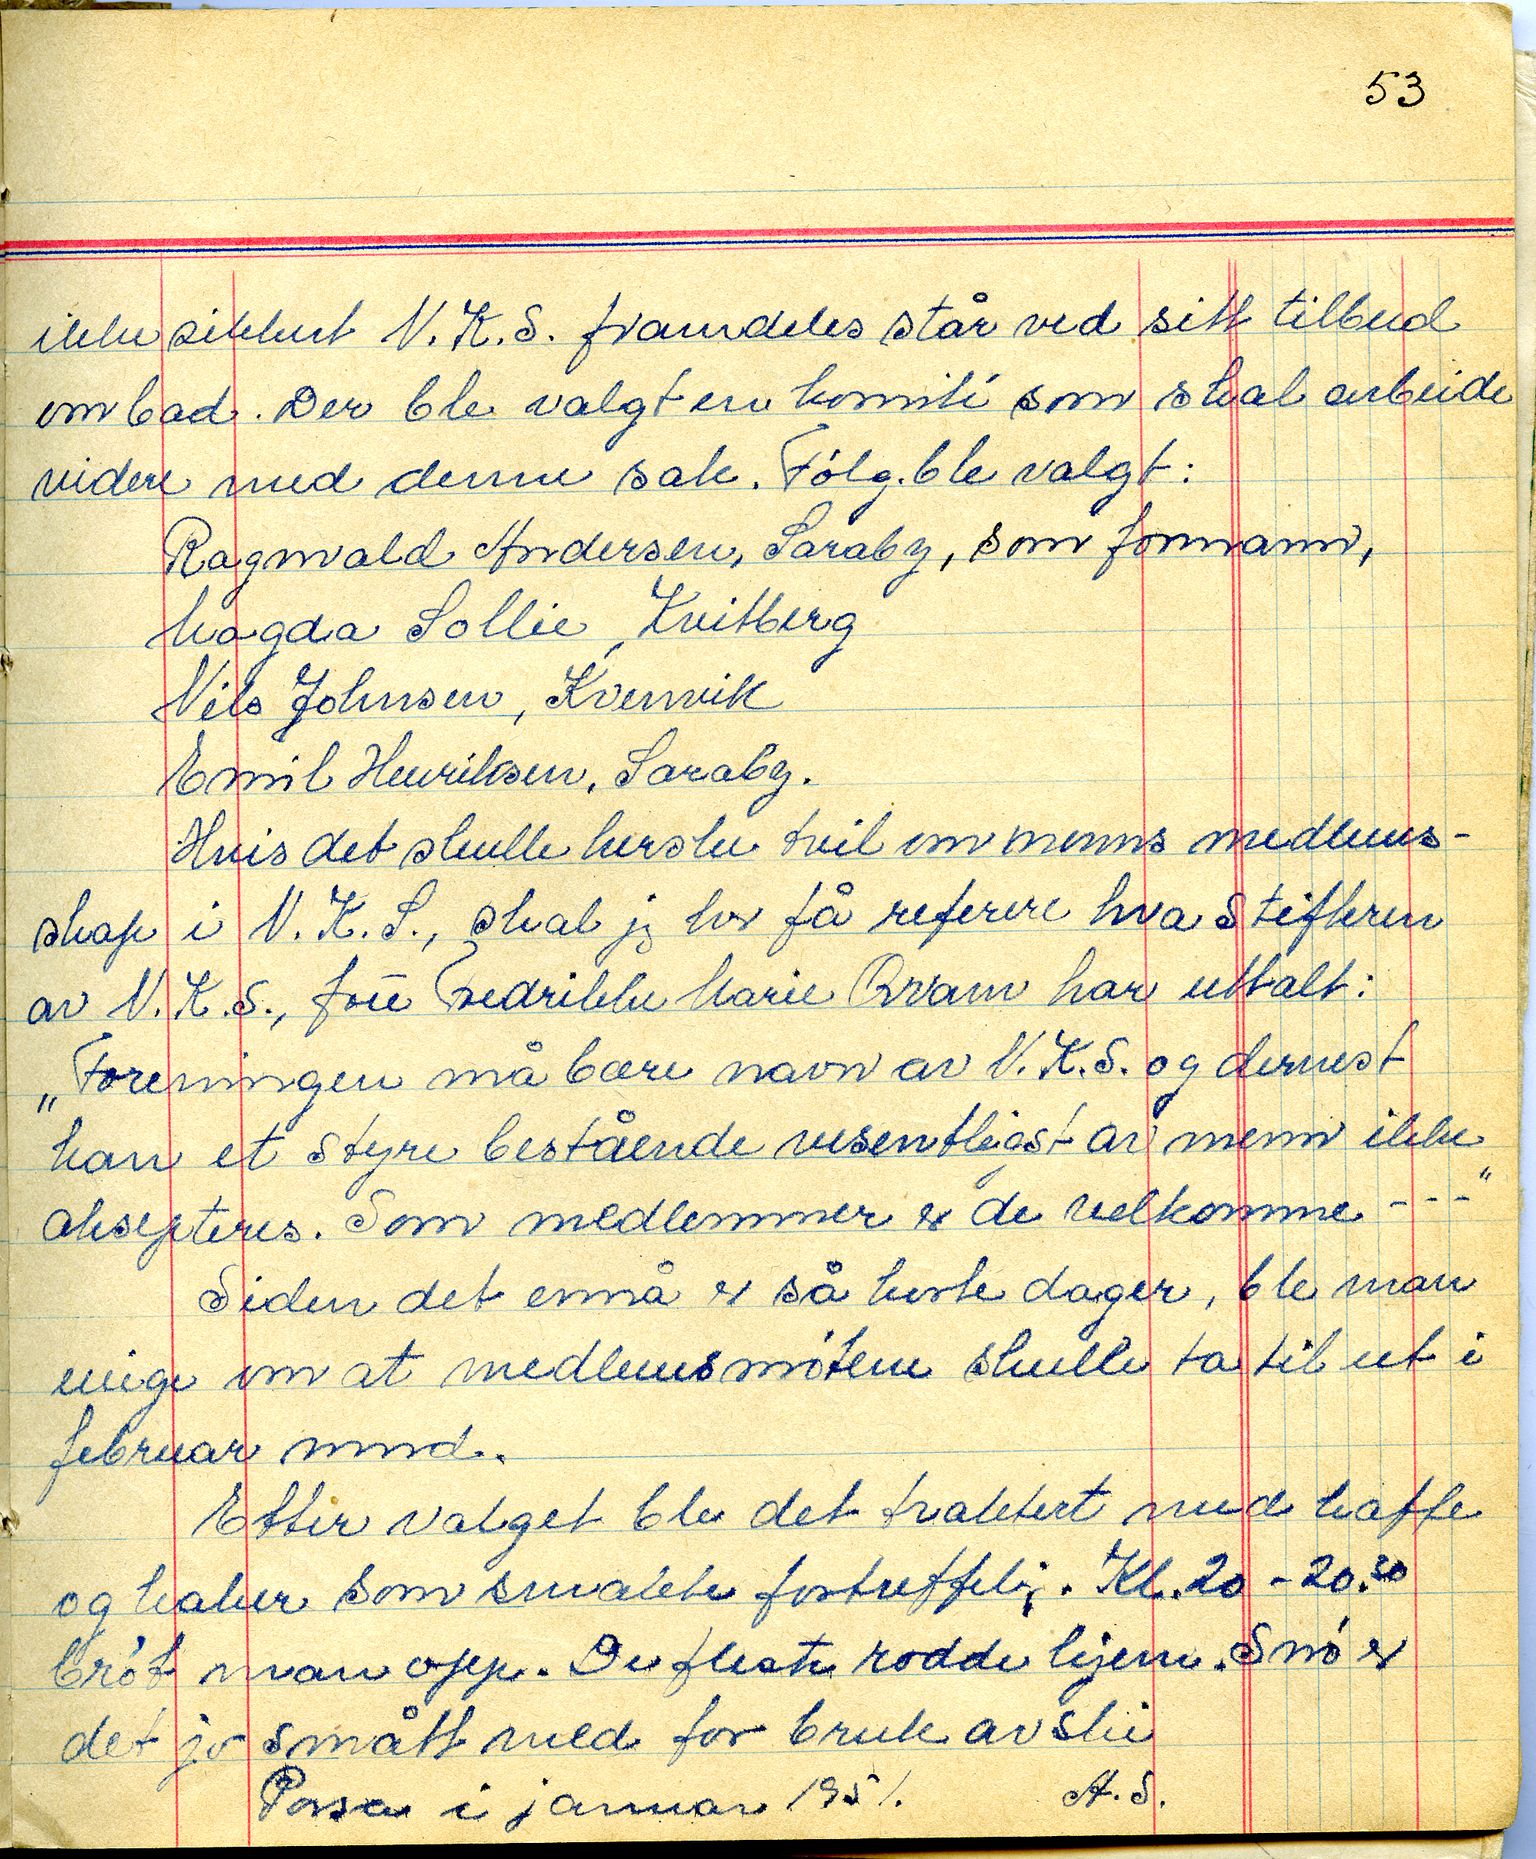 53
ikke sikkert N.K.S. framdeles står ved sitt tilbud
om bad. Der ble valgt en komité som skal arbeide
videre med denne sak. Følg. ble valgt:
Ragnvald Andersen, Saraby, som formann,
Magda Sollie, Kvitberg
Nils Johnsen, Kvenvik
Emil Henriksen, Saraby.
Hvis det skulle herske tvil om menns medlems-
skap i N.K.S., skal jeg her få referere hva stifteren
av N.K.S., frk Fredrikke Marie Qvam har uttalt:
„Foreningen må bære navn av N.K.S. og dernest
kan et styre bestående vesentligst av menn ikke
aksepteres. Som medlemmer er de velkomne ---"
Siden det ennå er så korte dager, ble man
enige om at medlemsmøtene skulle ta til ut i
februar mnd.
Etter valget ble det traktert med kaffe
og kaker som smakte fortreffelig. Kl. 20 - 20.30
brøt man opp. De fleste rodde hjem. Snø er
det jo smått med for bruk av ski
Porsa i januar 1951. A.S.